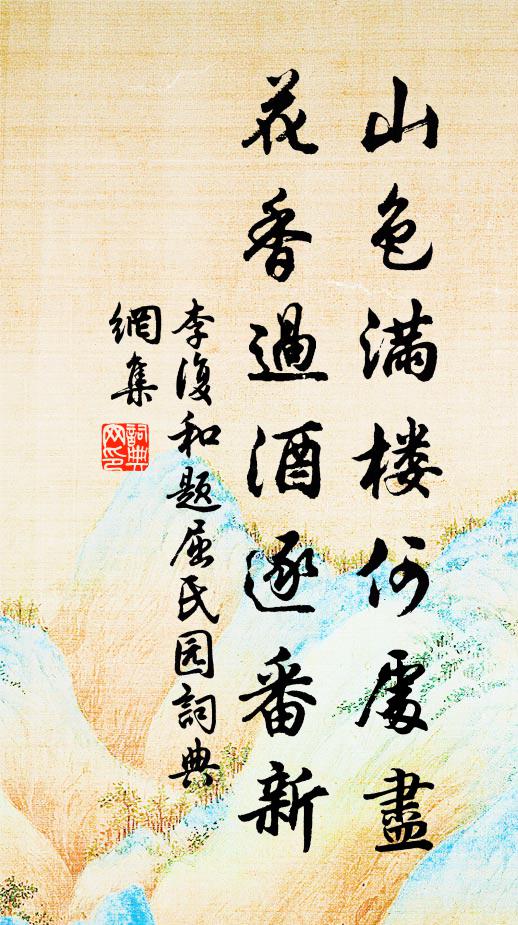 山色满楼何處盡
花香過酒逐番新
李復和题屈氏园詞典
網集
詞典網印